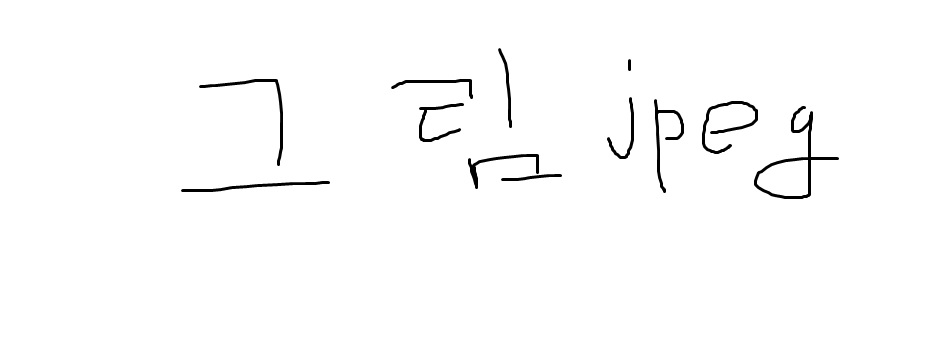 그림 jpeg